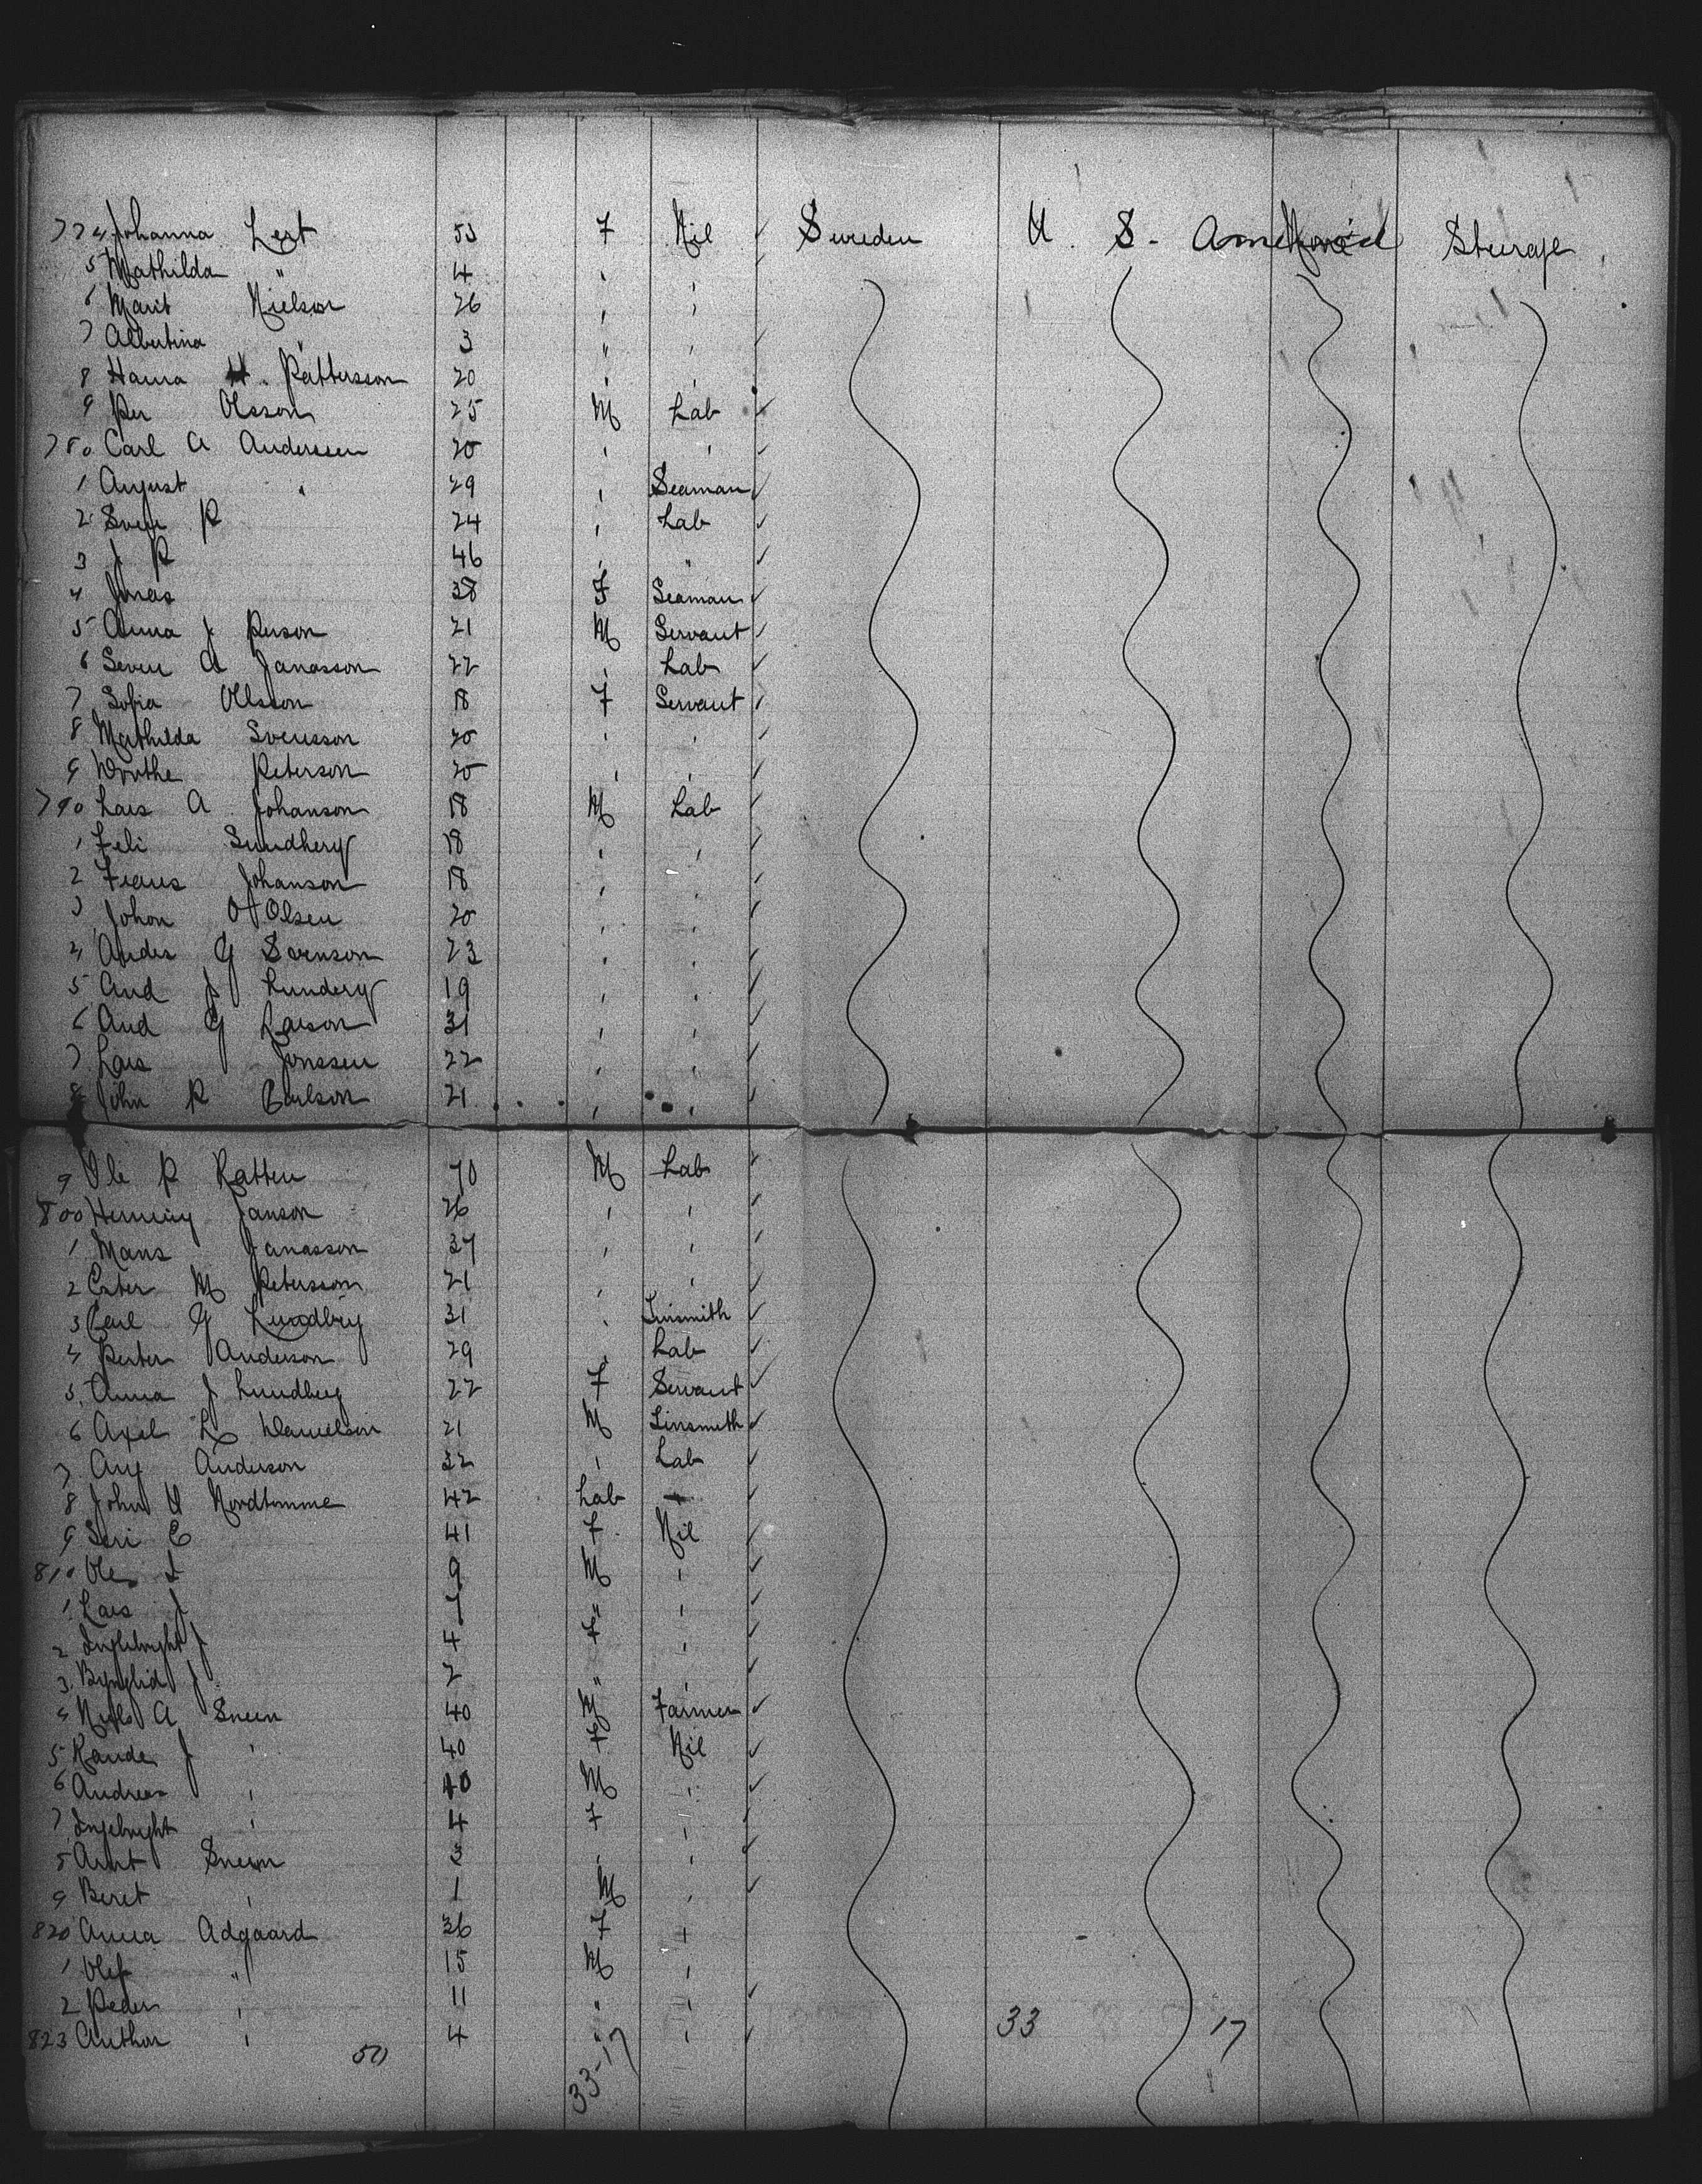 774 Johanna Lest 53 F Nil Sweden U. S. America Steerage
5 Mathilda " 4 " "
6 Marit Nielson 26 " "
7 Albertina " 3 " "
8 Hanna H. Pattersson 20 " "
9 Per Olsson 25 M Lab
780 Carl A Anderssen 20 " "
1 August " 29 " Seaman
2 Sven P 24 " Lab
3 J P 46 " "
4 Jonas 38 F Seaman
5 Anna J Person 21 M Servant
6 Seven A Janasson 22 " Lab
7 Sofia Ollsson 18 F Servant
8 Mathilda Svensson 20 " "
9 Dorthe Peterson 20 " "
790 Lars A Johanson 18 M Lab
1 Feli Sundberg 18 " "
2 Frans Johanson 18 " "
3 Johan O Olsen 20 " "
4 Andes G Svenson 23 " "
5 And J Lunderg 19 " "
6 And G Larson 31 " "
7 Lars Jonssen 22 " "
8 John P Carlson 21 " "
9 Ole P Ratten 70 M Lab
800 Henning Janson 26 " "
1 Mans Janasson 37 " "
2 Ester M Petersson 21 " "
3 Carl G Lundberg 31 " Tinsmith
4 Peter Anderson 29 " Lab
5 Anna J Lundberg 22 F Servant
6 Axel L Danielson 21 M Tinsmith
7 Aug Anderson 32 " Lab
8 John U Nordtomme 42 Lab
9 Seri E 41 F Nil
810 Ole J 9 M "
1 Lars J 7 " "
2 Inglebright J 4 F "
3 J 2 " "
4 Niels A Sneen 40 M Farmer
5 Rande J " 40 F Nil
6 Andreas " 10 M "
7 Ingebright " 4 F "
8 Arnt Sneen 3 " "
9 Beret " 1 M "
820 Anna Adgaard 36 F "
1 Olef " 15 M "
2 Peder " 11 " "
823 Anthor " 4 " " 33 17
50 33-17